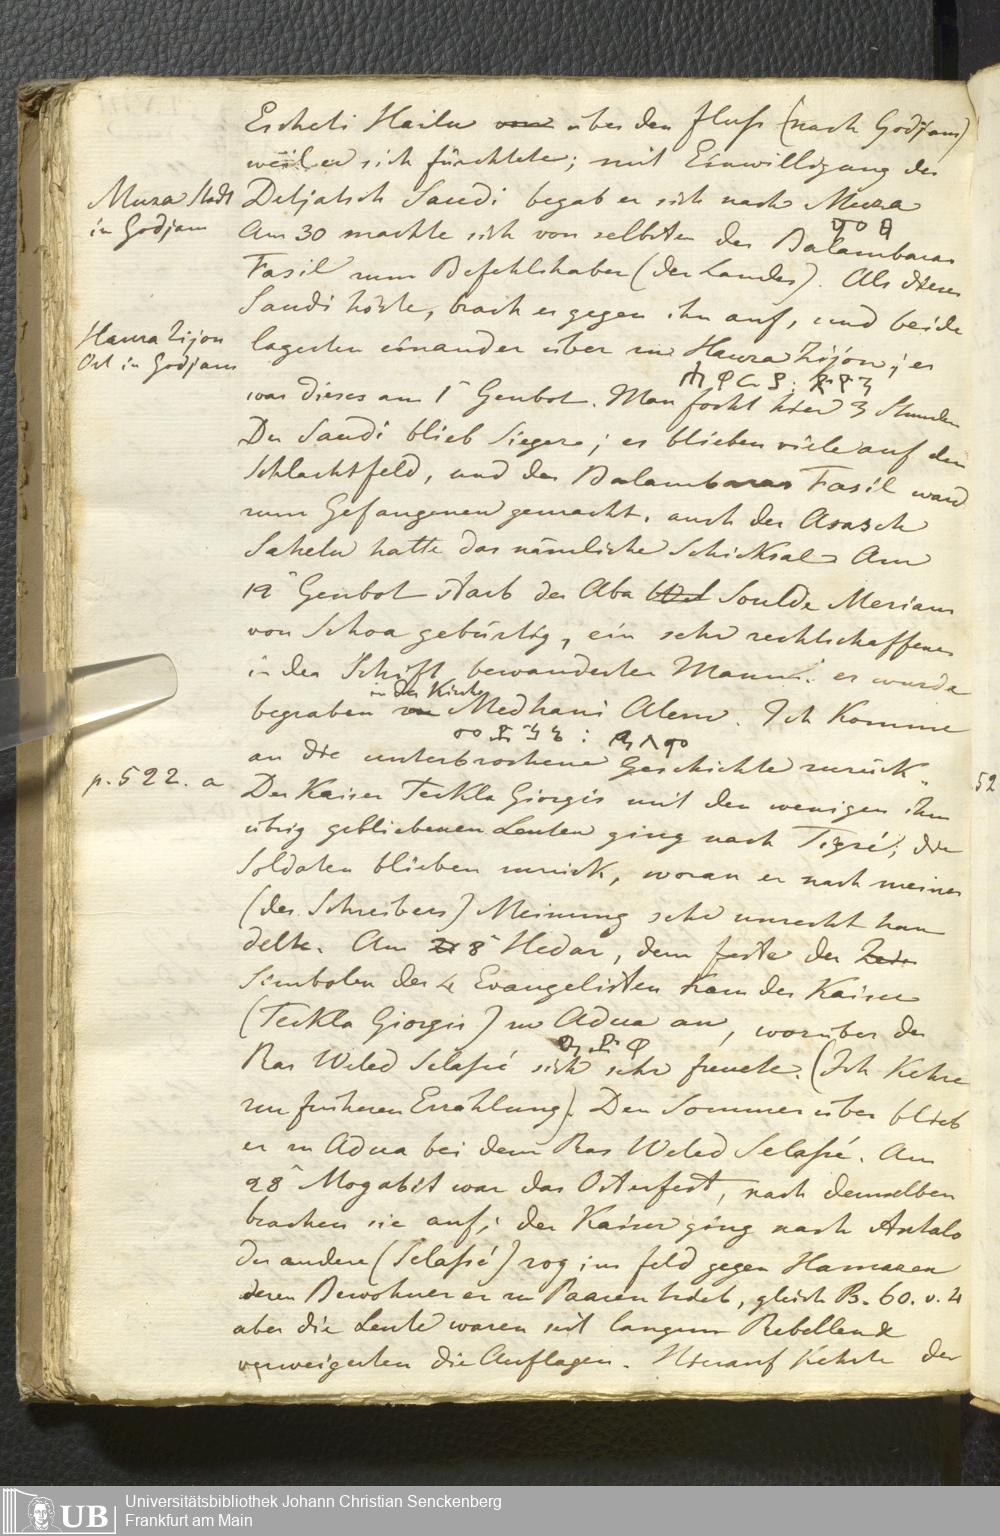 Escheti Hailu von über den Fluß (nach Godjam)
weil er sich fürchtete; mit Einwilligung des
Muza Stadt
in Godjam
Detjatsch Saudi begab er sich nach Muza
Am 30 machte sich von selbsten der Balambaras
Fasil zum Befehlshaber (des Landes). Als dieses
Saudi hörte, brach er gegen ihn auf, und beide
Hauza Zijon
Ort in Godjam
lagerten einander über zu Hauza Zijon; es
war dieses am 1ⁿ Genbot. Man focht hier 3 Stunden
Der Saudi blieb Sieger; es blieben viele auf dem
Schlachtfeld, und der Balambaras Fasil ward
zum Gefangenen gemacht, auch der Asasch
Sahelu hatte das nämliche Schicksal. Am
19ⁿ Genbot starb der Aba Soulde Meriam
von Schoa gebürtig, ein sehr rechtschaffener
in der Schrift bewanderter Mann: er wurde
in der Kirche
begraben von Medhani Alem. Ich komme
an die unterbrochene Geschichte zurück.
p. 522. a
Der Kaiser Teckla Giorgis mit den wenigen ihm
übrig gebliebenen Leuten ging nach Tigré; die
Soldaten blieben zurück, woran er nach meiner
(des Schreibers) Meinung sehr unrecht han
delte. Am 8ⁿ Hedar, dem Feste der
Simbolen der 4 Evangelisten kam der Kaiser
(Teckla Giorgis) zu Adua an, worüber der
Ras Weled Selaßé sich sehr freute. (Ich kehre
zur früheren Erzählung). Den Sommer über blieb
er zu Adua bei dem Ras Weled Selaßé. Am
28ⁿ Mogabit war das Osterfest, nach demselben
brachen sie auf; der Kaiser ging nach Antalo
der andere (Selaßé) zog ins Feld gegen Hamazen
deren Bewohner er zu Paaren trieb, gleich B. 60. v. 4
aber die Leute waren seit langem Rebellen &
verweigerten die Auflagen. Hierauf kehrte der
52
UB
Universitätsbibliothek Johann Christian Senckenberg
Frankfurt am Main